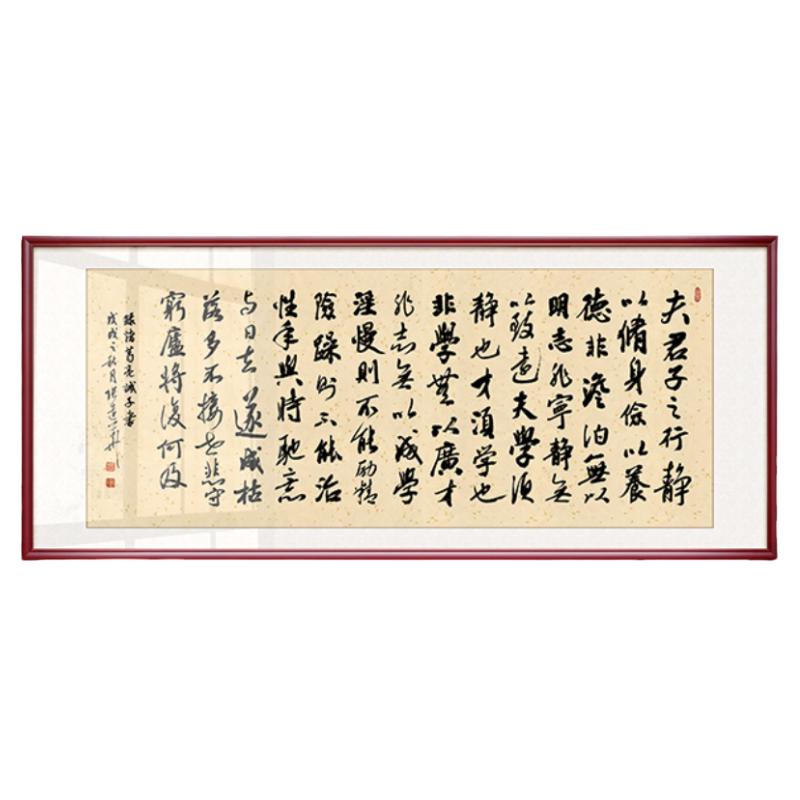 夫君子之行静
以脩身儉以養
德非澹泊無以
明志非寧静无
以致遠夫學須
静也才須学也
非學無以廣才
非志无以成學
淫慢則不能励精
險躁则不能治
性年與時馳意
与日去遂成枯
落多不接世悲守
窮廬將復何及
録諸葛亮诫子書
戊戌之秋月